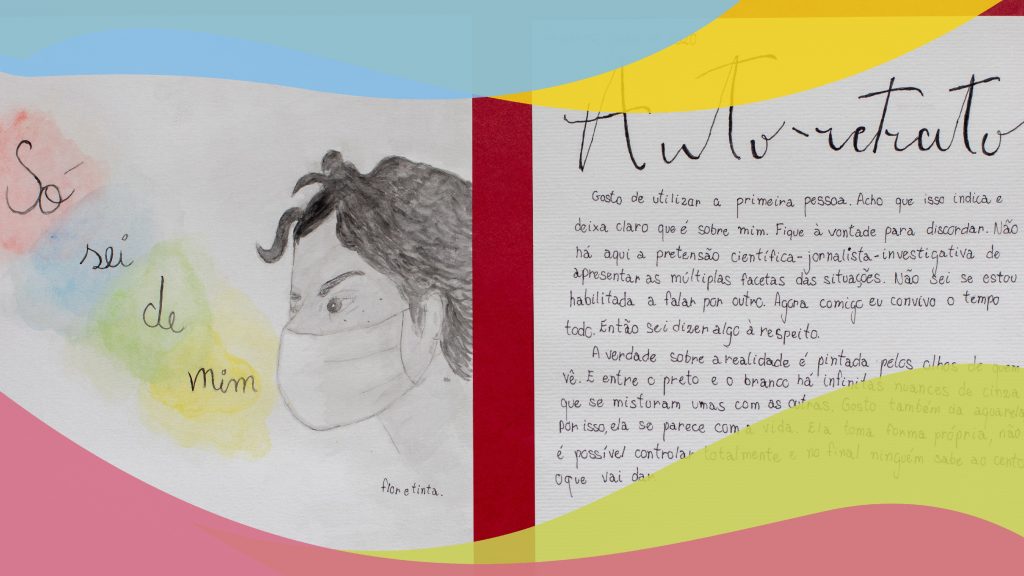 Só
sei
de
mim
flor e tinta.
Auto-retrato
Gosto de utilizar a primeira pessoa. Acho que isso indica e
deixa claro que é sobre mim. Fique à vontade para discordar. Não
há aqui a pretensão científica-jornalista-investigativa de
apresentar as múltiplas facetas das situações. Não sei se estou
habilitada a falar por outro. Agora comigo eu convivo o tempo
todo. Então sei dizer algo à respeito.
A verdade sobre a realidade é pintada pelos olhos de quem
vê. E entre o preto e o branco há infinitas nuances de cinza
que se misturam umas com as outras. Gosto também da aquarela
por isso, ela se parece com a vida. Ela toma forma própria, não
é possível controlar totalmente e no final ninguém sabe ao certo
oque vai dar